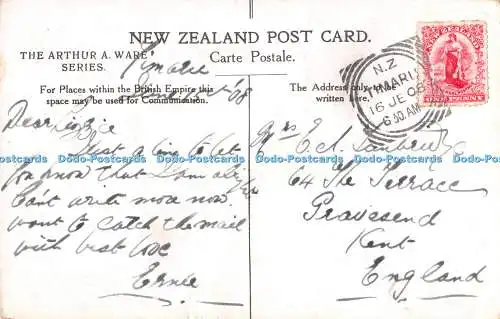 NEW ZEALAND POST CARD.
THE ARTHUR A. WARE
SERIES.
Carte Postale.
For Places within the British Empire this
space may be used for Communication.
The Address only to be
written here.
NEW ZEALAND
ONE PENNY
N.Z
TIMARU
16 JE 08
6 30 AM
Timaru
08
Dear Lizzie
Just a line to let
you know that I am
Can't write more now
want to catch the mail
with best love
Ernie
Mrs E A
64 The Terrace
Gravesend
Kent
England
Dodo-Postcards Dodo-Postcards Dodo-Postcards Dodo-Postcards Dodo-Postcards